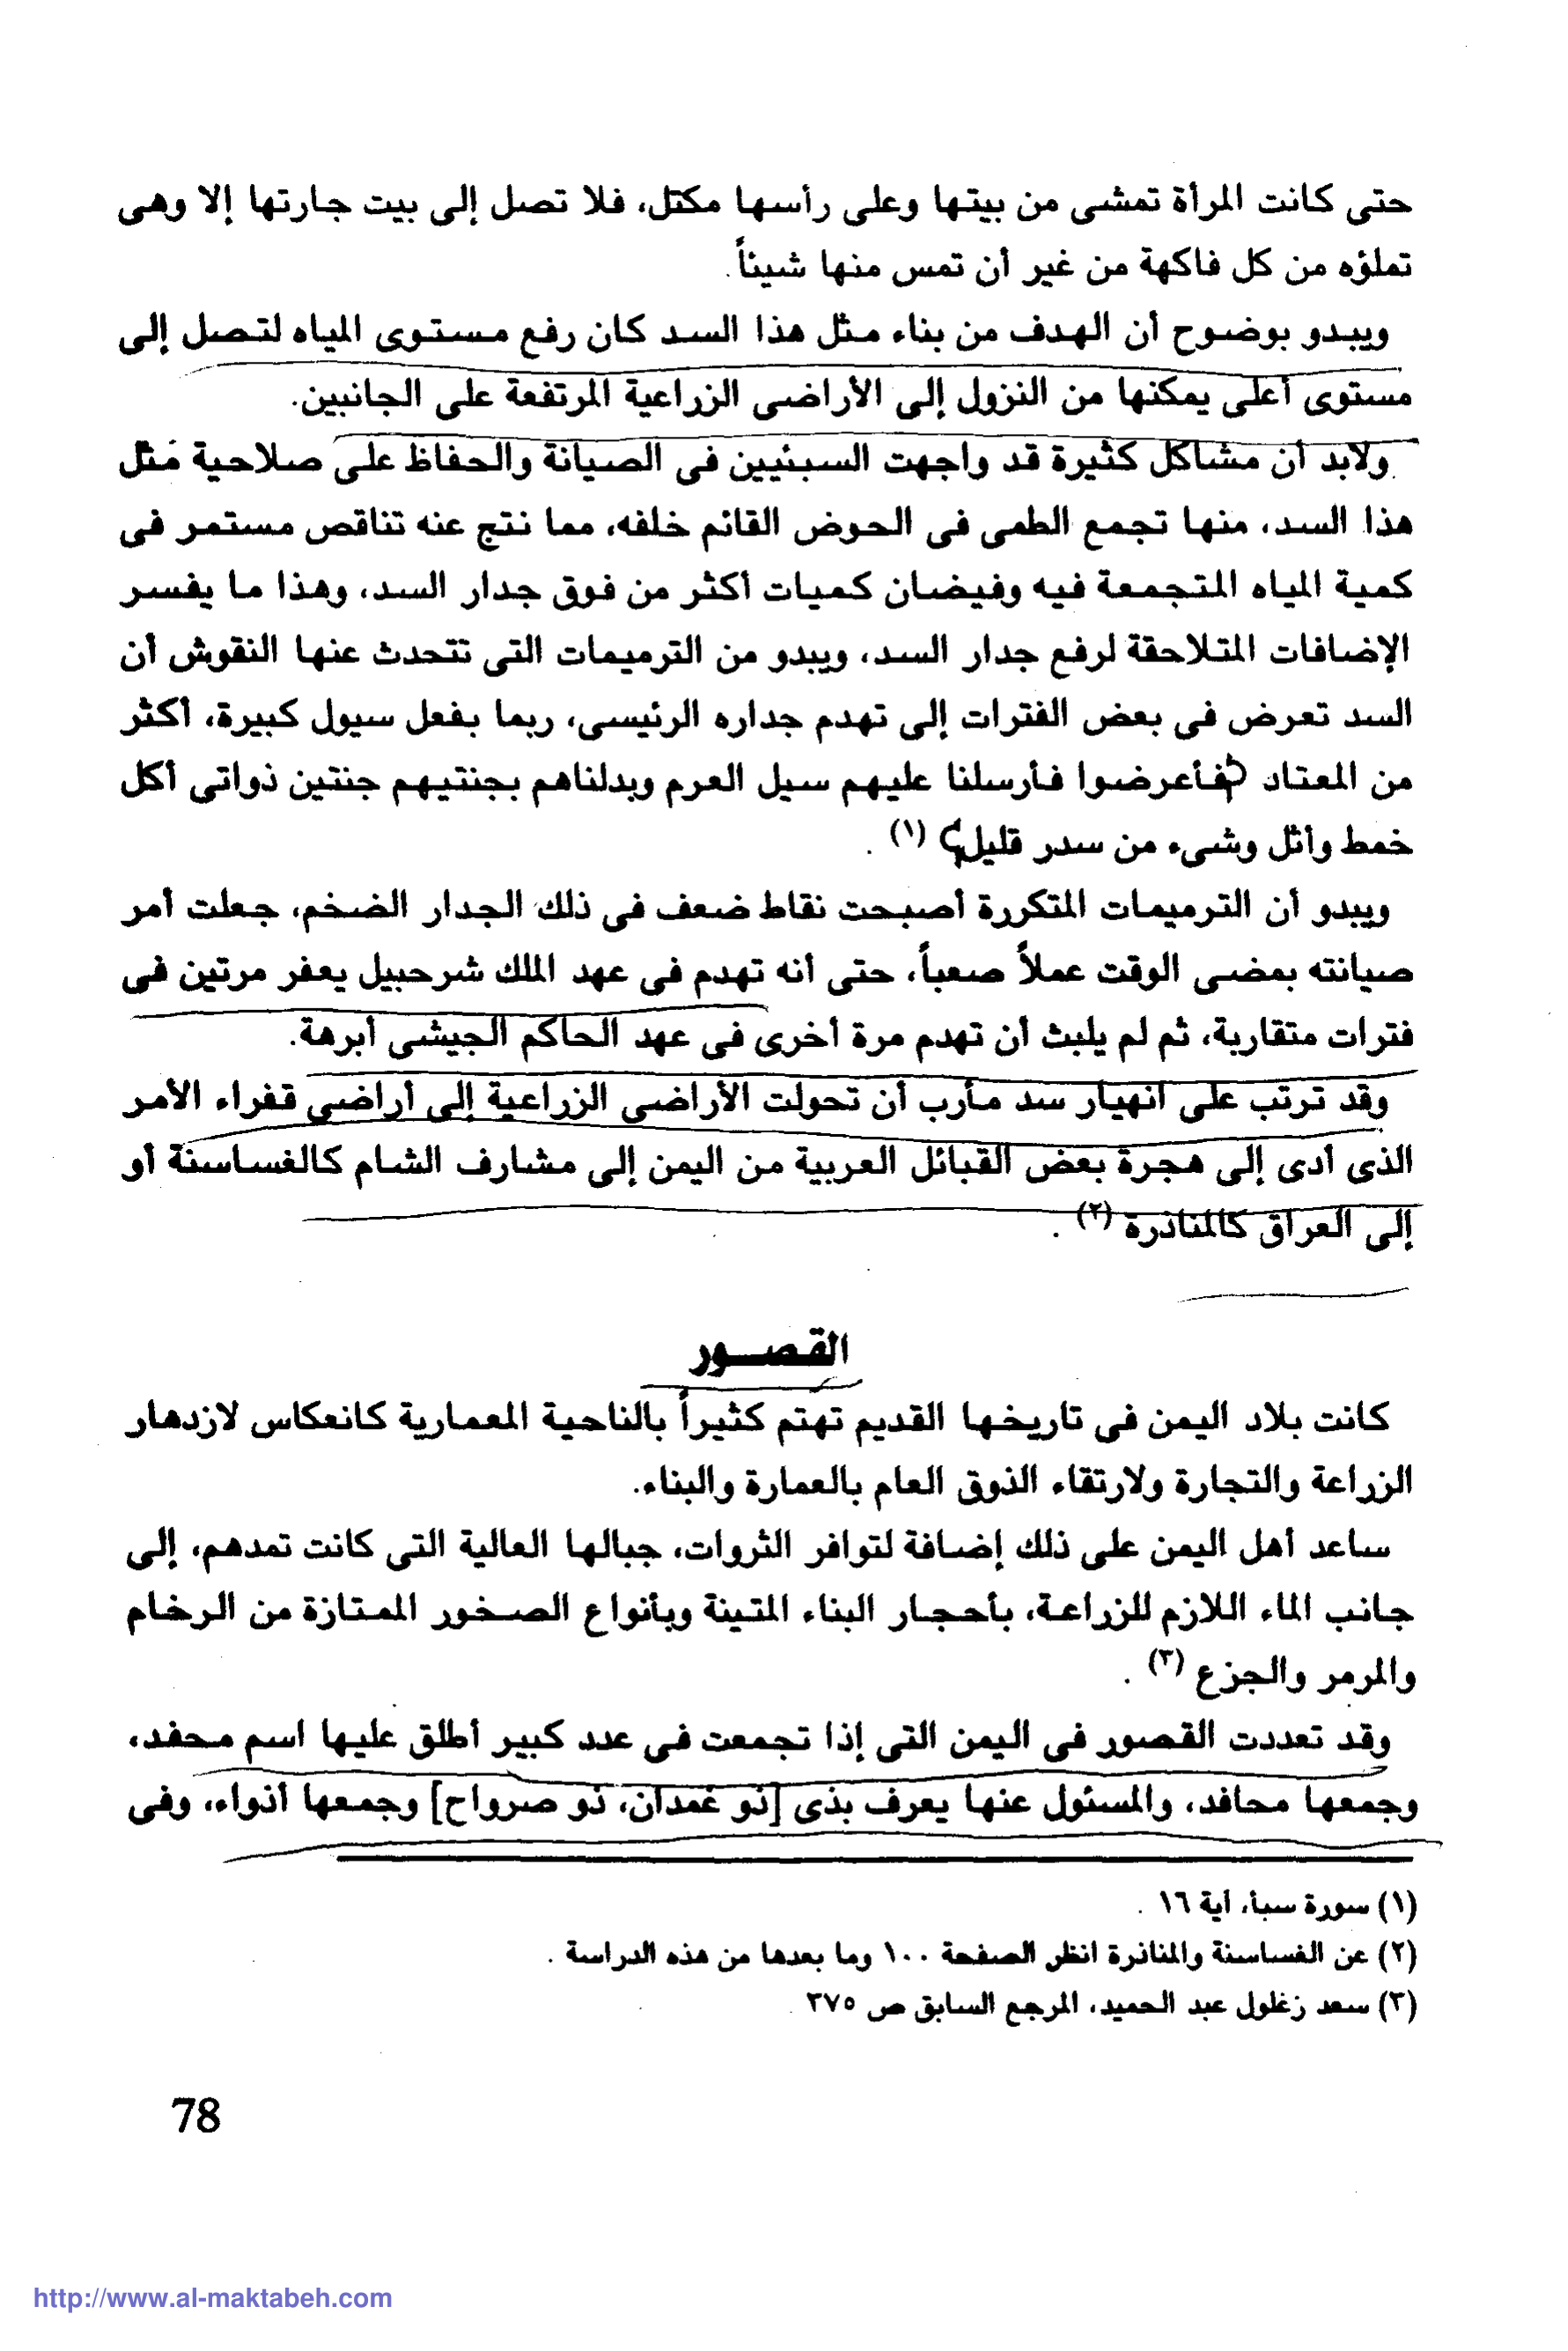 حتى كانت المرأة تمشى من بيتها وعلى رأسها مكتل، فلا تصل إلى بيت جارتها إلا وهى
تملؤه من كل فاكهة من غير أن تمس منها شيئاً.
ويبدو بوضوح أن الهدف من بناء مثل هذا السد كان رفع مستوى المياه لتصل إلى
مستوى أعلى يمكنها من النزول إلى الأراضى الزراعية المرتفعة على الجانبين.
ولابد أن مشاكل كثيرة قد واجهت السبئيين فى الصيانة والحفاظ على صلاحية مثل
هذا السد، منها تجمع الطمى فى الحوض القائم خلفه، مما نتج عنه تناقص مستمر فى
كمية المياه المتجمعة فيه وفيضان كميات أكثر من فوق جدار السد، وهذا ما يفسر
الإضافات المتلاحقة لرفع جدار السد، ويبدو من الترميمات التى تتحدث عنها النقوش أن
السد تعرض فى بعض الفترات إلى تهدم جداره الرئيسى، ربما بفعل سيول كبيرة، أكثر
من المعتاد ﴿فأعرضوا فأرسلنا عليهم سيل العرم وبدلناهم بجنتيهم جنتين ذواتى أكل
خمط وأثل وشىء من سدر قليل﴾ (١) .
ويبدو أن الترميمات المتكررة أصبحت نقاط ضعف فى ذلك الجدار الضخم، جعلت أمر
صيانته بمضى الوقت عملاً صعباً، حتى أنه تهدم فى عهد الملك شرحبيل يعفر مرتين فى
فترات متقاربة، ثم لم يلبث أن تهدم مرة أخرى فى عهد الحاكم الجيشى أبرهة.
وقد ترتب على انهيار سد مأرب أن تحولت الأراضى الزراعية إلى أراضى قفراء الأمر
الذى أدى إلى هجرة بعض القبائل العربية من اليمن إلى مشارف الشام كالغساسنة أو
إلى العراق كالمناذرة (٢) .
القصور
كانت بلاد اليمن فى تاريخها القديم تهتم كثيراً بالناحية المعمارية كانعكاس لازدهار
الزراعة والتجارة ولارتقاء الذوق العام بالعمارة والبناء.
ساعد أهل اليمن على ذلك إضافة لتوافر الثروات، جبالها العالية التى كانت تمدهم، إلى
جانب الماء اللازم للزراعة، بأحجار البناء المتينة وبأنواع الصخور الممتازة من الرخام
والمرمر والجزع (٣) .
وقد تعددت القصور فى اليمن التى إذا تجمعت فى عدد كبير أطلق عليها اسم محفد،
وجمعها محافد، والمسئول عنها يعرف بذى [ذو غمدان، ذو صرواح] وجمعها أذواء، وفى
(١) سورة سبأ، أية ١٦ .
(٢) عن الغساسنة والمناذرة انظر الصفحة ١٠٠ وما بعدها من هذه الدراسة .
(٣) سعد زغلول عبد الحميد، المرجع السابق ص ٣٧٥ .
78
http://www.al-maktabeh.com